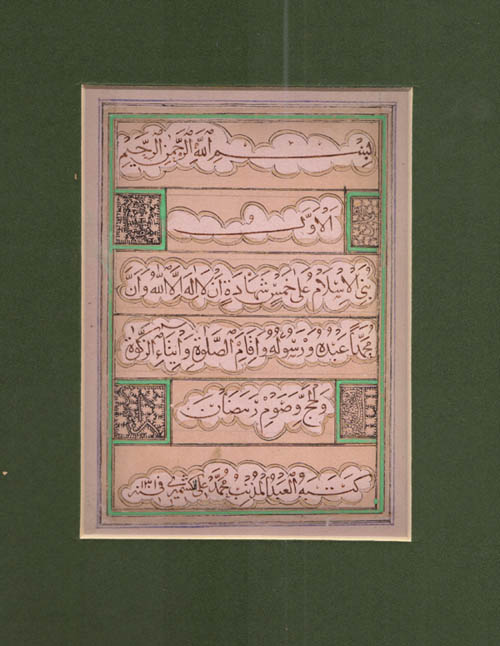 بِسْمِ اللهِ الرَّحْمٰنِ الرَّحِيْمِ
الاَوَّلُ
بُنِيَ الاِسْلَامُ عَلٰى خَمْسٍ شَهَادَةِ اَنْ لَا اِلٰهَ اِلَّا اللهُ وَاَنَّ
مُحَمَّدًا عَبْدُهُ وَرَسُوْلُهُ وَاِقَامِ الصَّلٰوةِ وَاِيْتَاءِ الزَّكٰوةِ
وَالْحَجِّ وَصَوْمِ رَمَضَانَ
كَتَبَهُ العَبْدُ المُذْنِبُ مُحَمَّدْ عَلِي فِي سَنَه